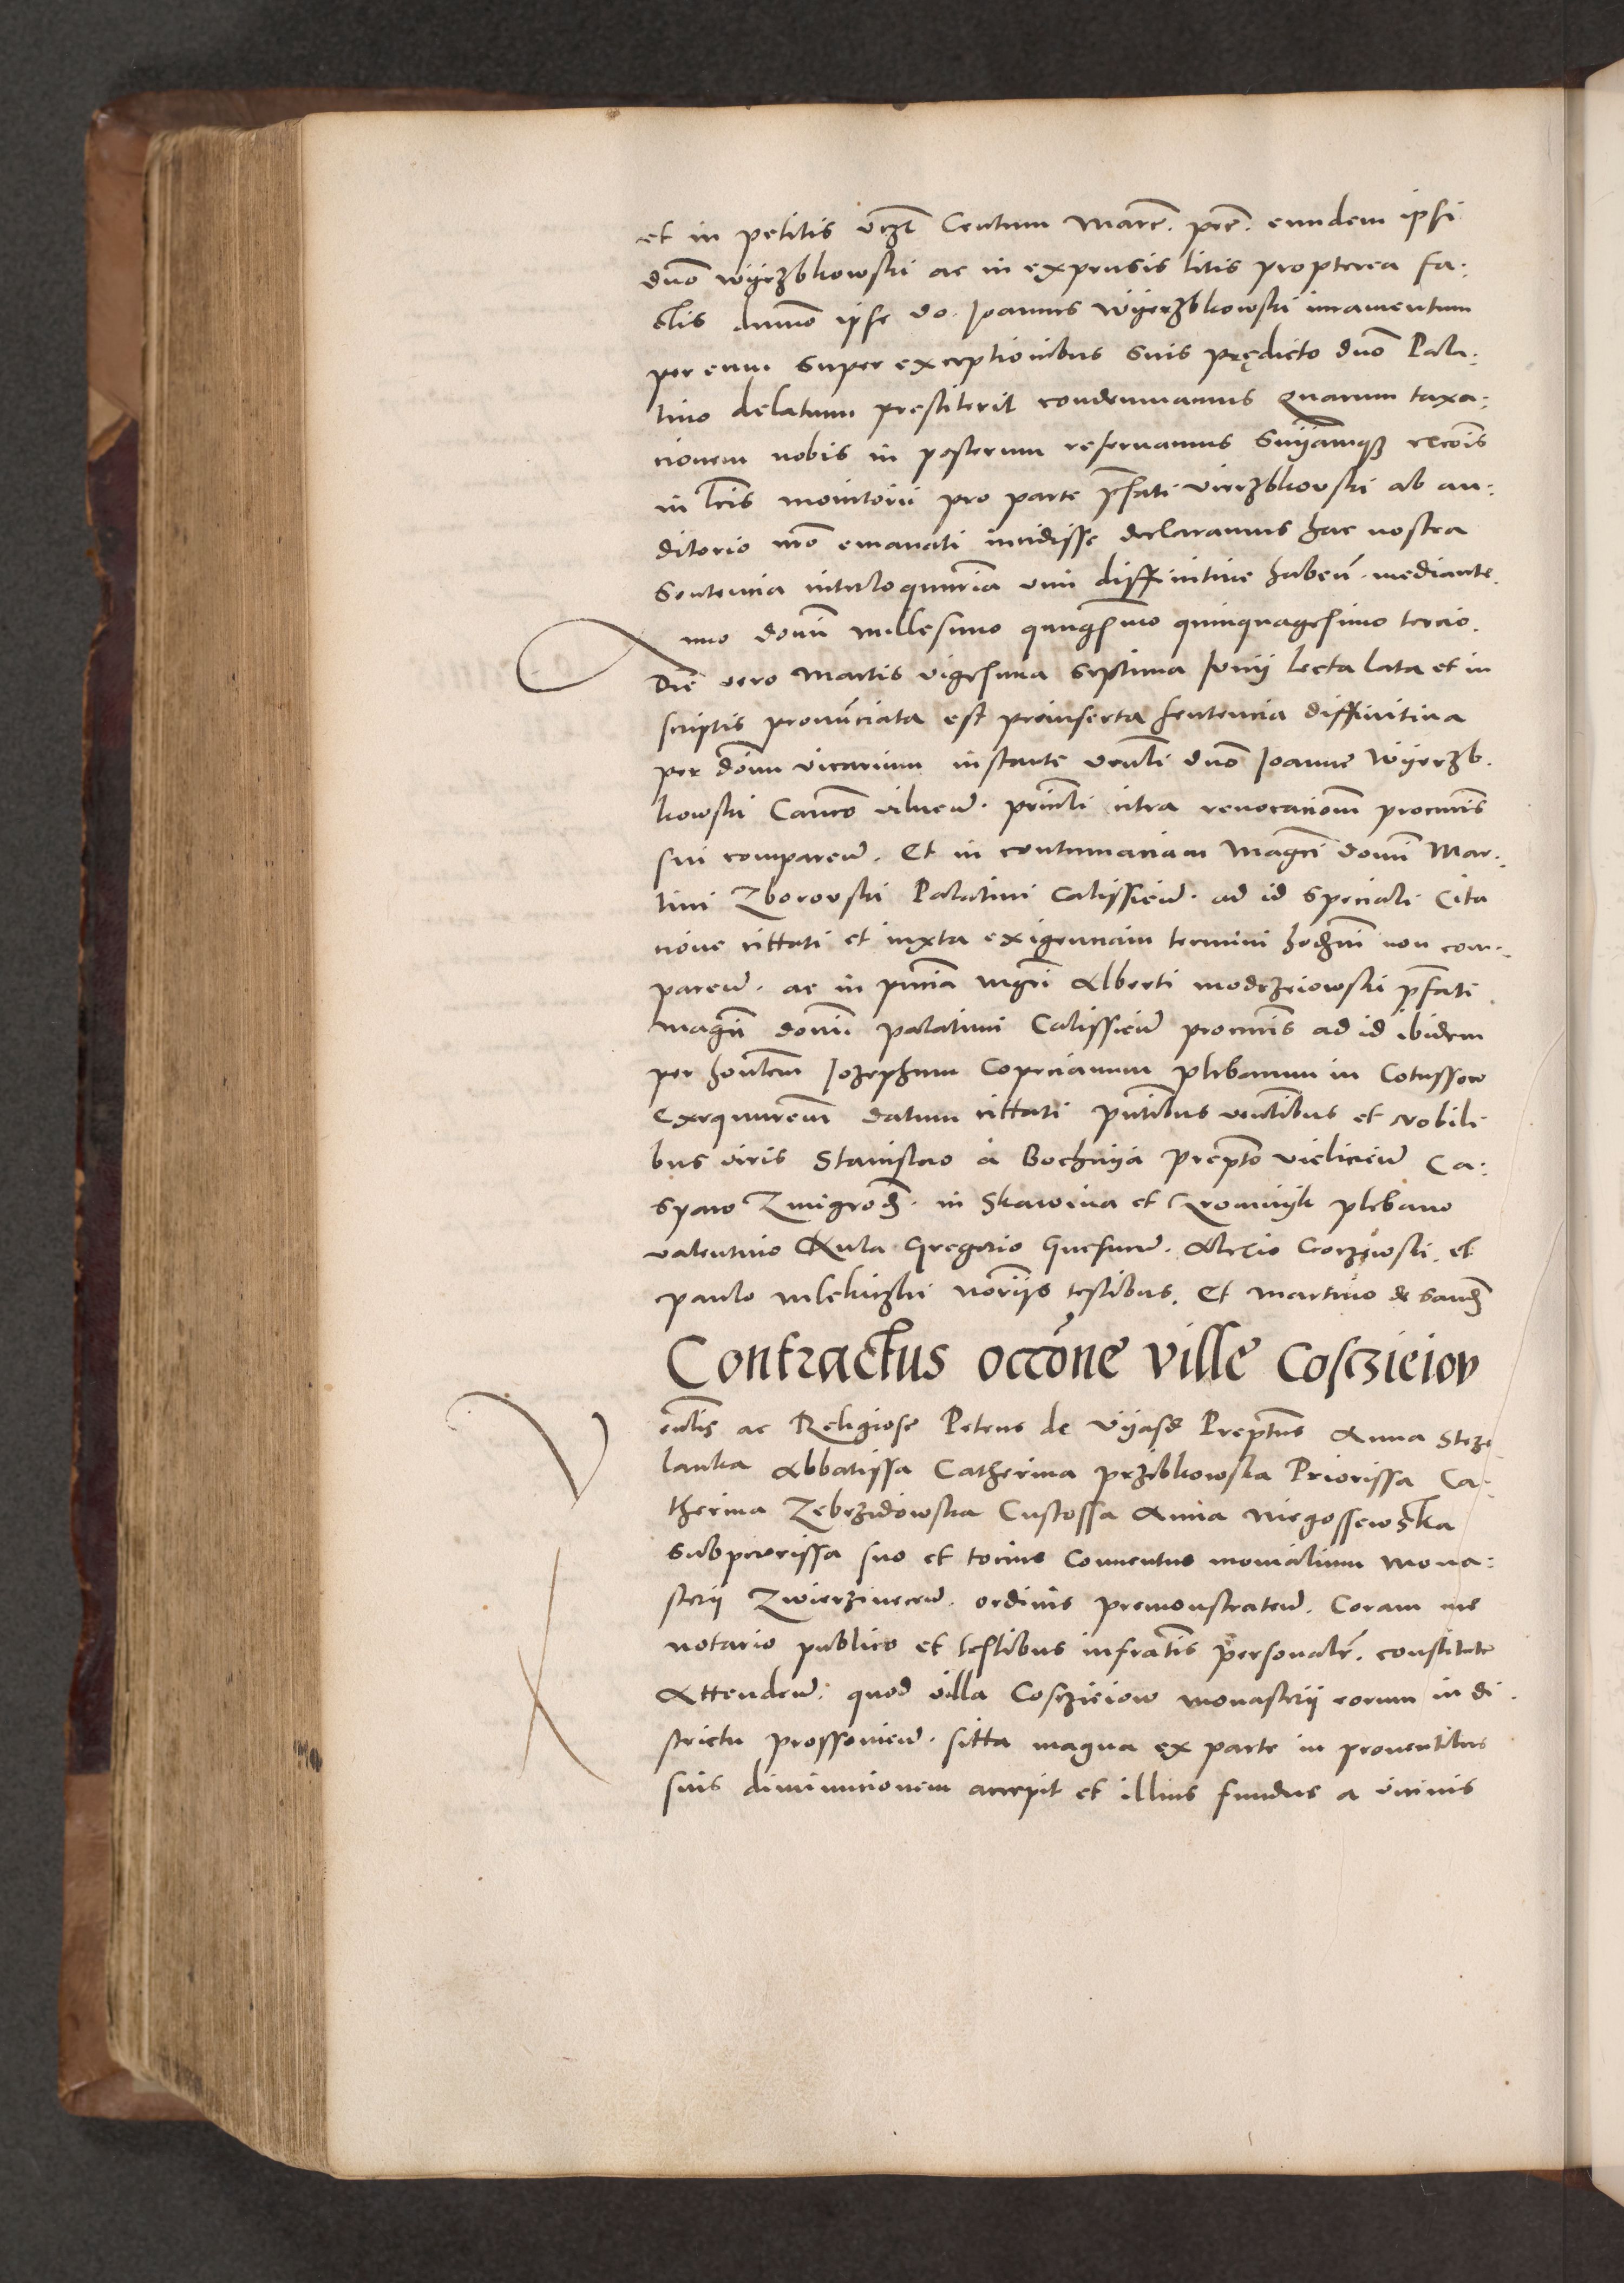 et in petitis vizt Centum Marc. pec. eundem ipsi
dno Wyerzbkowski ac in expensis litis propterea fa:
ctis dummo ipse do. Joannes Wyerzbkowski iuramentum
per eum super exceptionibus suis prędicto dno Pala:
tino delatum prestiterit condemnamus Quarum taxa:
cionem nobis in posterum reseruamus
in lris monitorii pro parte pfati vierzbkovski ab au:
ditorio nro emanati incidisse declaramus hac nostra
Sentencia interloquutria vim diffinitiue haben. mediante.
nno domi millesimo quingsimo quinquagesimo tercio.
Die vero Martis vigesima septima Junij lecta lata et in
scriptis pronunciata est preinserta sentencia diffinitiua
per dom vicarium instante venli dno Joanne Wyerzb.
kowski Canco vilnen. princli citra reuocacionem procuris
sui comparen. Et in contumaciam Magci domi Mar.
tini Zborovski Palatini Calissien. ad id speciali Cita
cione cittati et iuxta exigenciam termini hodierni non com.
paren. ac in pncia mgri Alberti modrzeiowski pfati
magci domi palatini Calissien procuris ad id ibidem
per honlem Jozephum Copecianum plebanum in Cotussow
Exequutrem datum cittati pntibus venlibus et Nobili
bus viris Stanislao a Bochnya Prepto vielicien Ca:
sparo Zmigrod. in Skawina et Cromnyk plebano
valentino Kula Gregorio Gnesnen. Alexio et
paulo mlekiczki norijs testibus. Et Martino de sand
Contractus occone ville Cosczieiow
V enlis ac Religiose Petrus de Vyasd Preptus Anna Strze
lanka Abbatissa Catherina przibkowska Priorissa Ca:
therina Zebrzidowska Custossa Anna Niegossewska
Subpriorissa suo et tocius Conuentus monialium Mona:
sterij Zwierzinecen. ordinis premonstraten. Coram me
notario publico et testibus infratis personalr. constitute
Attenden. quod villa Cosczieiow monasterij eorum in di.
strictu prossouien. sitta magna ex parte in prouentibus
suis diminucionem accepit et illius fundus a vicinis